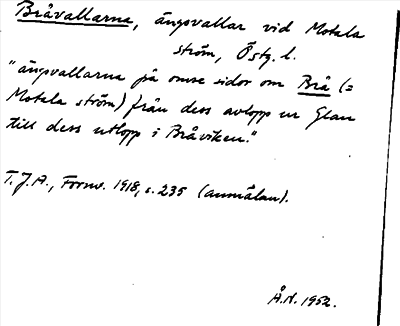 Bråvallarna, ängsvallar vid Motala
ström, Östg. l.
"ängsvallarna på ömse sidor om Brå (=
Motala ström) från dess avlopp ur Glan
till dess utlopp i Bråviken."
T.J.A., Fornv. 1918, s. 235 (anmälan).
Å.N. 1952.